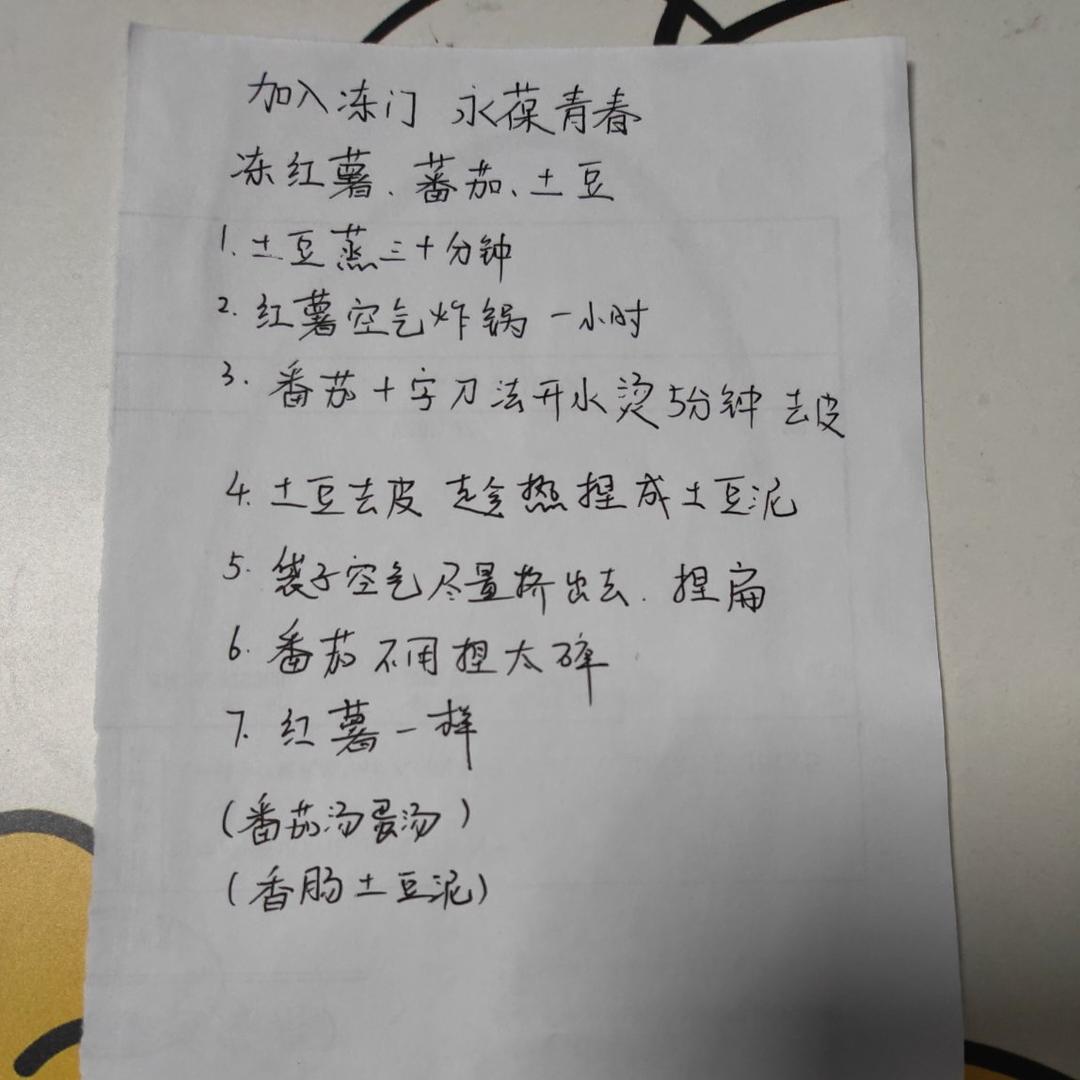 加入冻门 永葆青春
冻红薯、蕃茄、土豆
1. 土豆蒸三十分钟
2. 红薯空气炸锅 一小时
3. 番茄十字刀法开水烫5分钟 去皮
4. 土豆去皮 趁热捏成土豆泥
5. 袋子空气尽量挤出去. 捏扁
6. 番茄不用捏太碎
7. 红薯一样
(番茄汤蛋汤)
(香肠土豆泥)